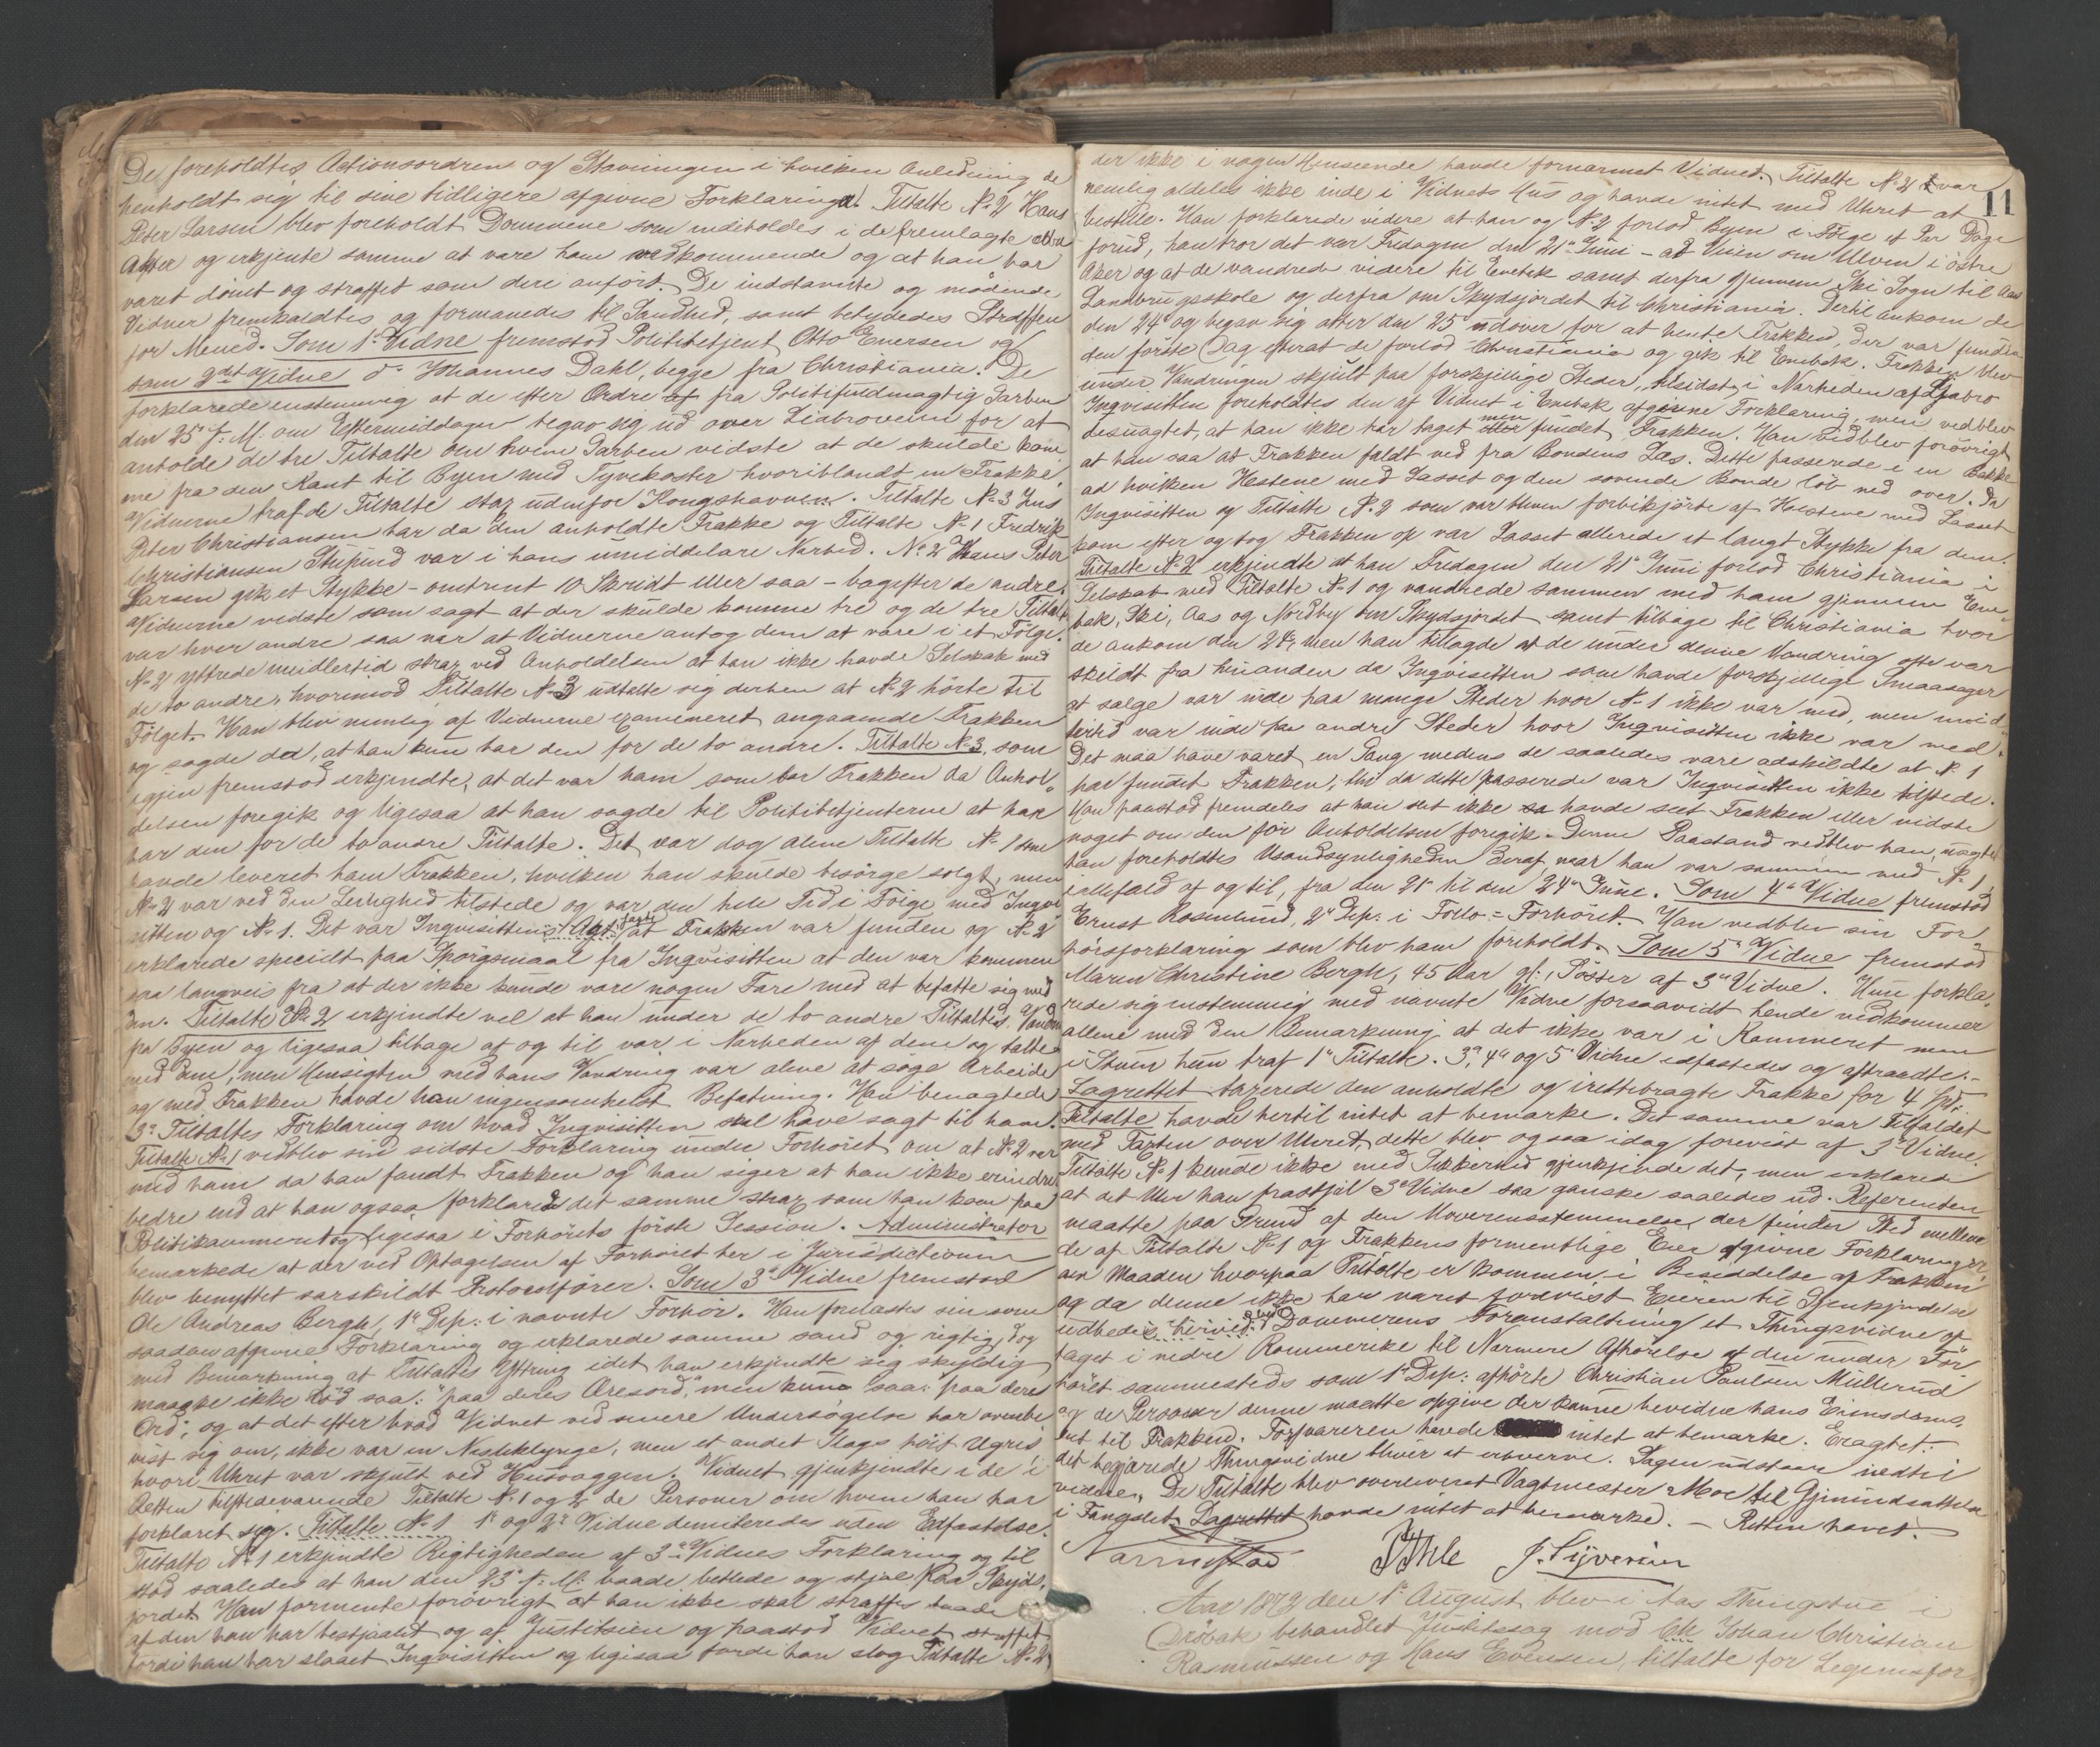 De foreholdtes Actionsordren og Stævningen i hvilken Anledning de
henholdt sig til sine tidligere afgivne Forklaringer. Tiltalte No 2 Hans
Peter Larsen blev foreholdt Dommene som indeholdes i de fremlagte
Akter og erkjendte samme at være ham vedkommende og at han har
været dømt og straffet som deri anført. De indstævnte og mødende
Vidner fremkaldtes og formanedes til Sandhed, samt betydedes Straffen
for Meneed. Som 1ste Vidne fremstod Politibetjent Otto Evensen og
som 2det Vidne do Johannes Dahl, begge fra Christiania. De
forklarede enstemmig at de efter Ordre af fra Politifuldmægtig Tarben
den 25 f: M: om Eftermiddagen begav sig ud over Liabroveien for at
anholde de tre Tiltalte om hvem Tarben vidste at de skulde kom
me fra den Kant til Byen med Tyvekoster hvoriblandt en Frakke.
Vidnerne traf de Tiltalte strax udenfor Kongshavnen. Tiltalte No 3 Jens
Peter Christiansen bar da den anholdte Frakke og Tiltalte No 1 Fredrik
Christiansen Stupind var i hans umiddelbare Nærhed. No 2 Hans Peter
Larsen gik et Stykke - omtrent 10 Skridt eller saa - bagefter de andre.
Vidnerne vidste som sagt at der skulde komme tre og de tre Tiltalte
var hver andre saa nær at Vidnerne antog dem at være i et Følge.
No 2 yttrede imidlertid strax ved Anholdelsen at han ikke havde Selskab med
de to andre, hvorimod Tiltalte No 3 udtalte sig derhen at No 2 hørte til
Følget. Han blev nemlig af Vidnerne examineret angaaende Frakken
og sagde da, at han kun bar den for de to andre. Tiltalte No 3, som
igjen fremstod erkjendte, at det var ham som bar Frakken da Anhol
delsen foregik og ligesaa at han sagde til Politibetjenterne at han
bar den for de to andre Tiltalte. Det var dog alene Tiltalte No 1 som
havde leveret ham Frakken, hvilken han skulde besørge solgt, men
No 2 var ved den Leilighed tilstede og var den hele Tid i Følge med Ingvi
sitten og No 1. Det var Ingvisitten sagt at Frakken var funden og No 2
erklærede specielt paa Spørgsmaal fra Ingvisitten at den var kommen
saa langveis fra at der ikke kunde være nogen Fare med at befatte sig med
den. Tiltalte No 2 erkjendte vel at han under de to andre Tiltaltes Vandring
fra Byen og ligesaa tilbage af og til var i Nærheden af dem og talte
med dem, men Hensigten med hans Vandring var alene at søge Arbeide
og med Frakken havde han ingensomhelst Befatning. Han benægtede
3die Tiltaltes Forklaring om hvad Ingvisitten skal have sagt til ham.
Tiltalte No 1 vedblev sin sidste Forklaring under Forhøret om at No 2 var
med ham da han fandt Frakken og han siger at han ikke erindrer
bedre end at han ogsaa forklarede det samme strax som han kom paa
Politikammeret og ligesaa i Forhørets første Session. Administrator
bemærkede at der ved Optagelsen af Forhøret her i Jurisdictionen
blev benyttet særskildt Protocolfører. Som 3die Vidne fremstod
Ole Andreas Bergh, 1ste Dep: i nævnte Forhør. Han forelæstes sin som
saadan afgivne Forklaring og erklærede samme sand og rigtig, dog
med Bemærkning at Tiltaltes Yttring idet han erkjendte sig skyldig
maaske ikke lød saa: "paa deres Æresord," men kun saa: paa deres
Ord; og at det efter hvad Vidnet ved senere Undersøgelse har overbe
vist sig om, ikke var en Nesleklynge, men et andet Slags høit Ugræs
hvori Uhret var skjult ved Husvæggen. Vidnet gjenkjendte i de i
Retten tilstedeværende Tiltalte No 1 og 2 de Personer om hvem han har
forklaret sig. Tiltalte No 1 1ste og 2det Vidne demitteredes uden Edfæstelse.
Tiltalte No 1 erkjendte Rigtigheden af 3die Vidnes Forklaring og til
stod saaledes at han den 23de f: M: baade betlede og stjal paa Skyds
jordet. Han formente forøvrigt at han ikke skal straffes baade
af den han har bestjaalet og af Justitsien og paastod Vidnet straffet
fordi han har slaaet Ingvisitten og ligesaa fordi han slog Tiltalte No 2
11
der ikke i nogen Henseende havde fornærmet Vidnet. Tiltalte No 2 var
nemlig aldeles ikke inde i Vidnets Hus og havde intet med Uhret at
bestille. Han forklarede videre at han og No 2 forlod Byen i Følge et Par Dage
forud, han tror det var Fredagen den 21de Juni - ad Veien om Ulven i østre
Aker og at de vandrede videre til Enebak samt derfra gjennem Ski Sogn til Aas
Landbrugsskole og derfra om Skydsjordet til Christiania. Dertil ankom de
den 24de og begav sig atter den 25de udover for at hente Frakken, der var funden
den første Dag efterat de forlod Christiania og gik til Enebak. Frakken blev
under Vandringen skjult paa forskjellige Steder, tilsidst i Nærheden af Ljabro
Ingvisitten foreholdtes den af Vidnet i Enebak afgivne Forklaring, men vedblev
desuagtet, at han ikke har taget men fundet Frakken. Han vedblev forøvrigt
at han saa at Frakken faldt ned fra Bondens Læs. Dette passerede i en Bakke
ad hvilken Hestene med Læsset og den sovende Bonde løb ned over. Da
Ingvisitten og Tiltalte No 2 som var bleven forbikjørte af Hestene med Læsset
kom efter og tog Frakken op var Læsset allerede et langt Stykke fra dem.
Tiltalte No 2 erkjendte at han Fredagen den 21de Juni forlod Christiania i
Selskab med Tiltalte No 1 og vandrede sammen med ham gjennem Ene
bak, Ski, Aas og Nordby om Skydsjordet samt tilbage til Christiania hvor
de ankom den 24de, men han tillagde at de under denne Vandring ofte var
skildt fra hinanden da Ingvisitten som havde forskjellige Smaasager
at sælge var inde paa mange Steder hvor No 1 ikke var med, men imid
lertid var inde paa andre Steder hvor Ingvisitten ikke var med.
Det maa have været en Gang medens de saaledes vare adskildte at No 1
har fundet Frakken, thi da dette passerede var Ingvisitten ikke tilstede.
Han paastod fremdeles at han slet ikke havde seet Frakken eller vidste
noget om den før Anholdelsen foregik. Denne Paastand vedblev han, uagtet
han foreholdtes Usandsynligheden deraf, naar han var sammen med No 1,
ialfald af og til, fra den 21de til den 24de Juni. Som 4de Vidne fremstod
Ernst Rosenlund, 2den Dep: i Follo-Forhøret. Han vedblev sin For
hørsforklaring som blev ham foreholdt. Som 5te Vidne fremstod
Maren Christine Bergh, 45 Aar gl:, Søster af 3die Vidne. Hun forkla
rede sig enstemmig med nævnte Vidne forsaavidt hende vedkommer
allene med den Bemærkning at det ikke var i Kammeret men
i Stuen hun traf 1ste Tiltalte. 3die, 4de og 5te Vidne edfæstedes og aftraadte. -
Lagrettet taxerede den anholdte og irettebragte Frakke for 4 Spd.
Tiltalte havde hertil intet at bemærke. Det samme var Tilfældet
med Taxten over Uhret, dette blev ogsaa idag forevist af 3die Vidne.
Tiltalte No 1 kunde ikke med Sikkerhed gjenkjende det, men erklærede
at det Uhr han frastjal 3die Vidne saa ganske saaledes ud. Referenten
maatte paa Grund af den Uoverensstemmelse der finder Sted mellem
de af Tiltalte No 1 og Frakkens formentlige Eier afgivne Forklaringer
om Maaden hvorpaa Tiltalte er kommen i Besiddelse af Frakken
og da denne ikke har været forevist Eieren til Gjenkjendelse
udbede sig herved ved Dommerens Foranstaltning et Thingsvidne op
taget i nedre Romerike til Nærmere Afhørelse af den under For
høret sammesteds som 1ste Dep: afhørte Christian Paulsen Mullerud
og de Personer denne maatte opgive der kunne bevidne hans Eiendoms
ret til Frakken. Forsvareren havde intet at bemærke. Eragtet:
det begjærede Thingsvidne bliver at erhverve. Sagen udstaar indtil
videre. De Tiltalte blev overleveret Vagtmester Moe til Gjenindsættelse
i Fængslet. Lagrettet havde intet at bemærke. - Retten hævet.
Narmstad Ihle J. Syversen
Aar 1872 den 1ste August blev i Aas Thingstue i
Drøbak behandlet Justitssag mod Ck Johan Christian
Rasmussen og Hans Evensen, tiltalte for Legemsfor